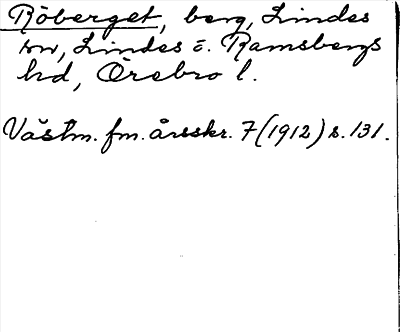 Röberget, berg, Lindes
sn, Lindes o. Ramsbergs
hd, Örebro l.
Västm. fm. årsskr. 7 (1912) s. 131.